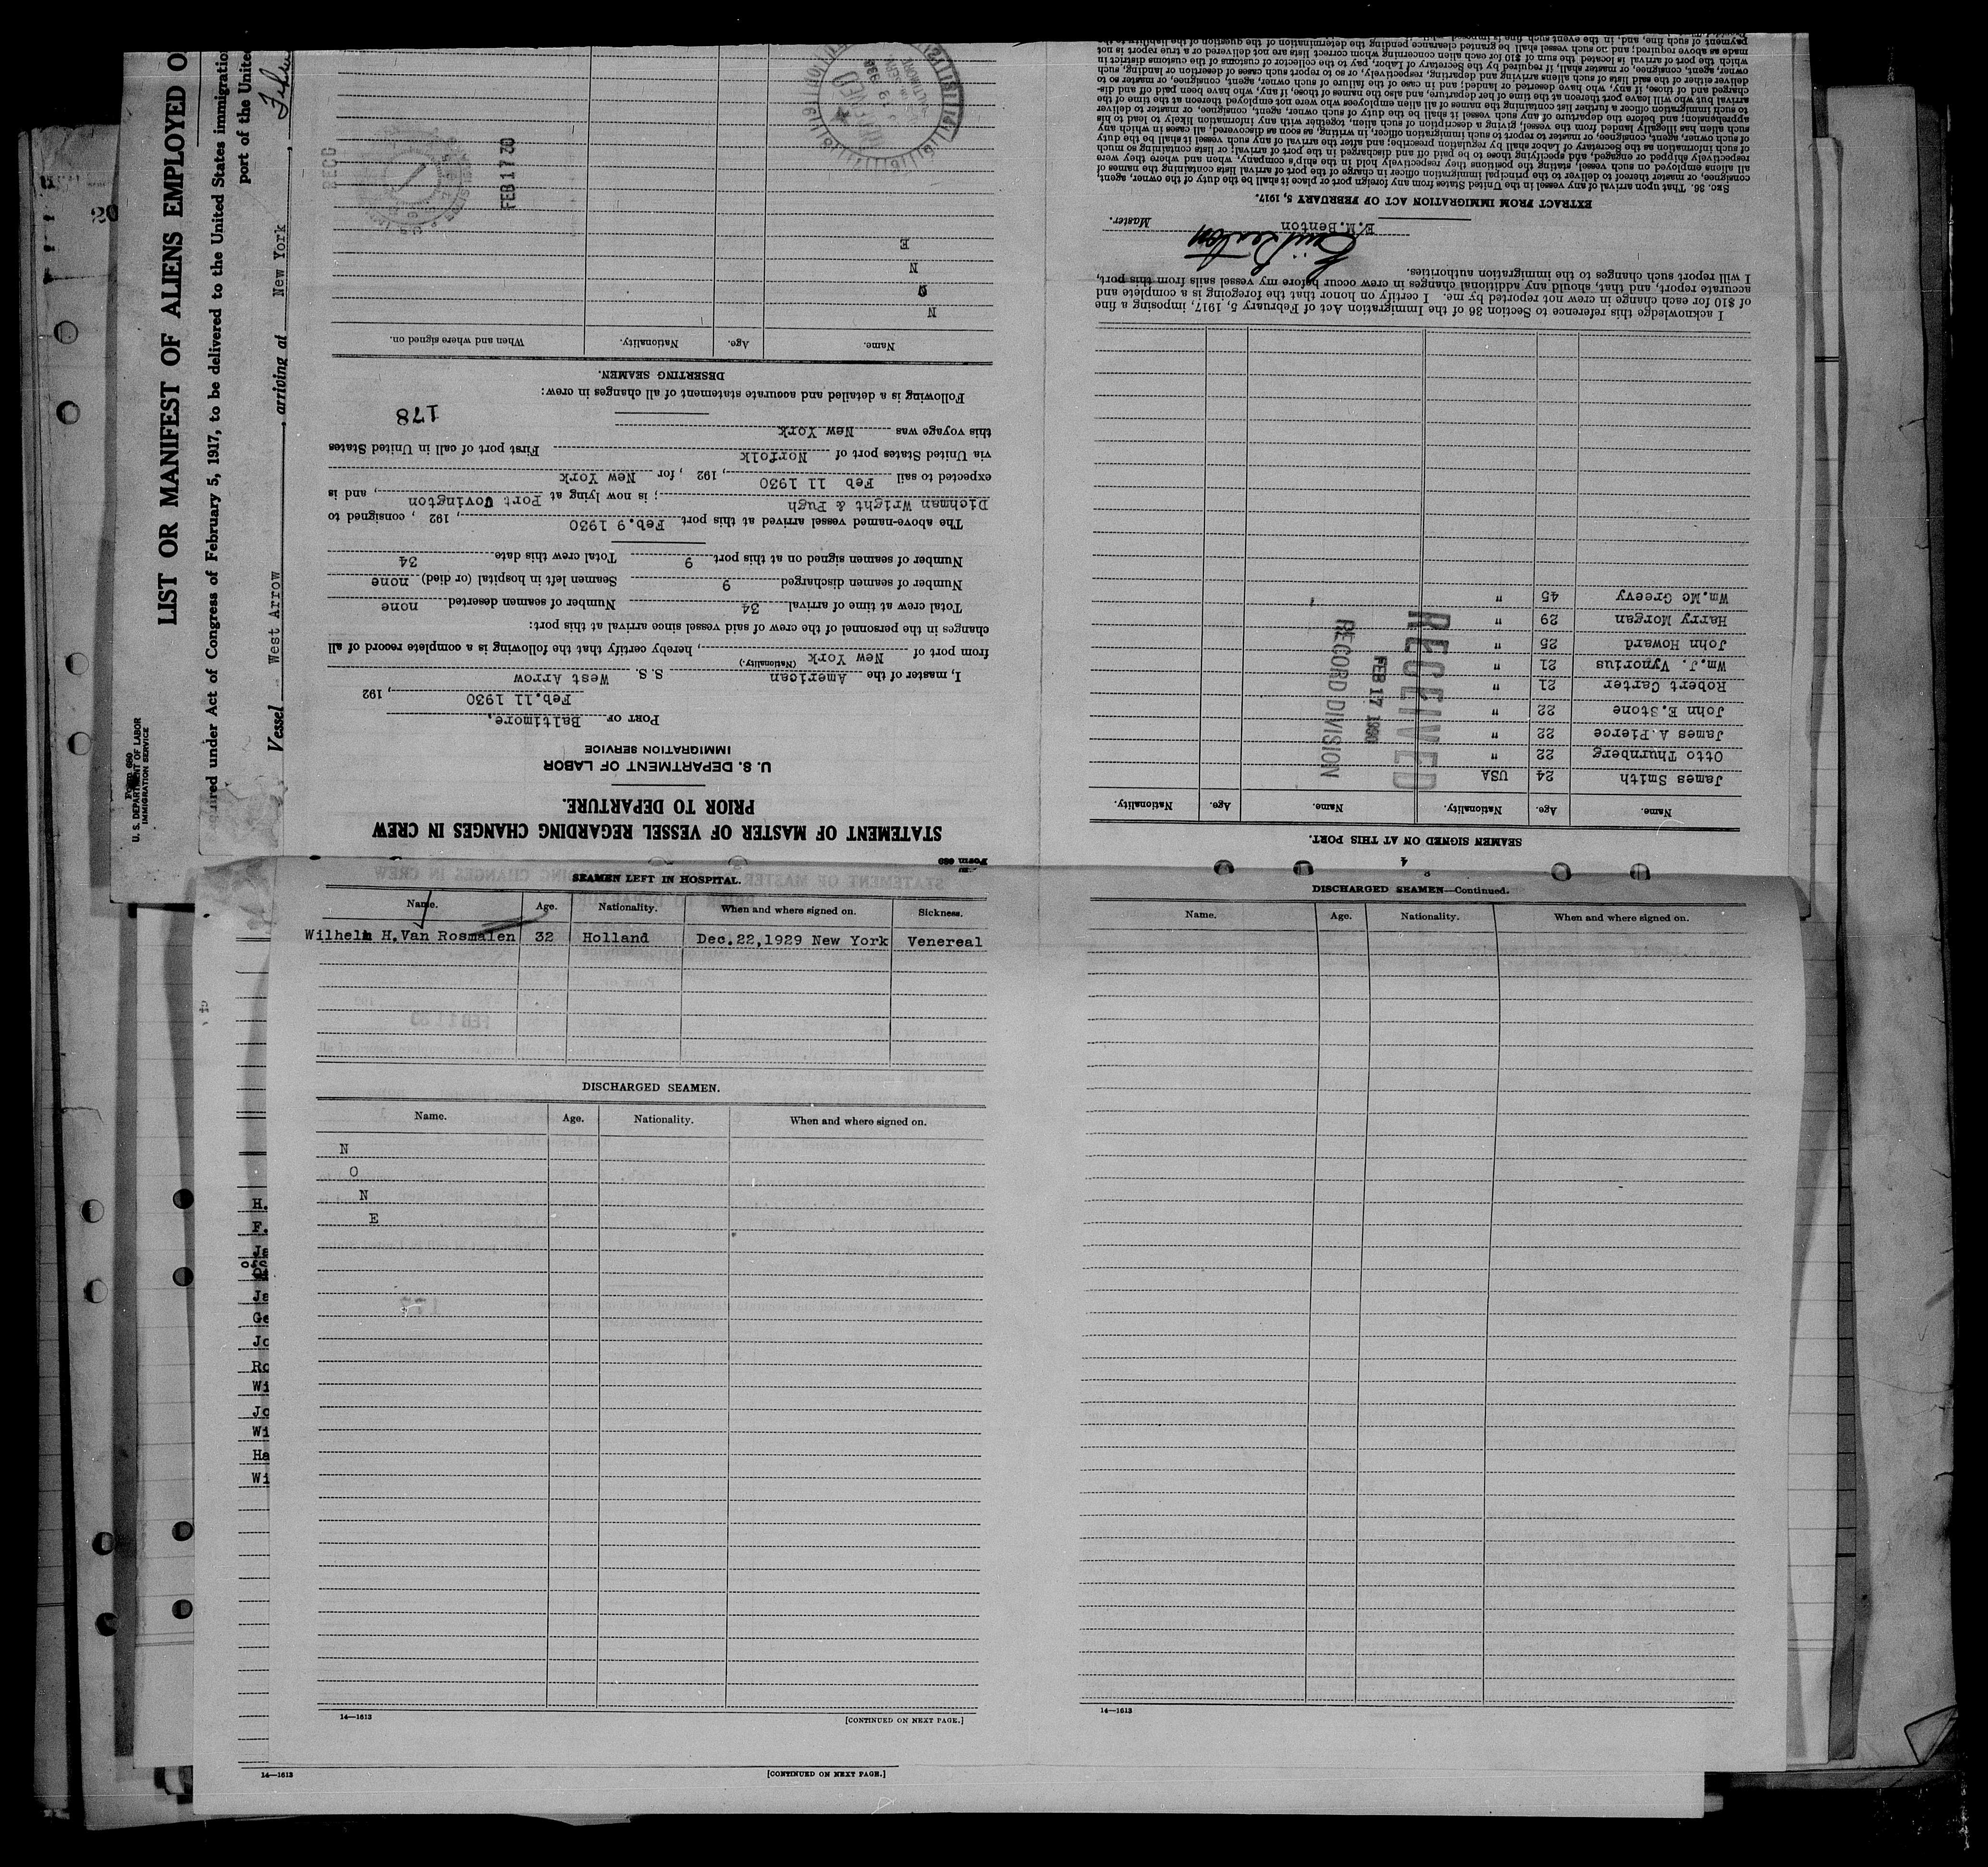 LIST OR MANIFEST OF ALIENS EMPLOYED O
ured under Act of Congress of February 5, 1917, to be delivered to the United States immigratio
port of the Unite
Vessel West Arrow , arriving at New York
U. S. DEPARTMENT OF LABOR
IMMIGRATION SERVICE
20
Form 689
STATEMENT OF MASTER OF VESSEL REGARDING CHANGES IN CREW
PRIOR TO DEPARTURE.
U. S. DEPARTMENT OF LABOR
IMMIGRATION SERVICE
PORT OF Baltimore,
Feb.11 1930, 192
I, master of the American S. S. West Arrow
(Nationality.)
from port of New York, hereby certify that the following is a complete record of all
changes in the personnel of the crew of said vessel since arrival at this port:
Total crew at time of arrival 34 Number of seamen deserted none
Number of seamen discharged 9 Seamen left in hospital (or died) none
Number of seamen signed on at this port 9 Total crew this date 34
The above-named vessel arrived at this port Feb.9 1930, 192 , consigned to
Dichman Wright & Pugh; is now lying at Port Covington, and is
expected to sail Feb 11 1930, 192 , for New York
via United States port of Norfolk First port of call in United States
this voyage was New York
178
Following is a detailed and accurate statement of all changes in crew:
DESERTING SEAMEN.
Name. Age. Nationality. When and where signed on.
N
O
N
E
FEB 17 30
RECD
SEAMEN SIGNED ON AT THIS PORT.
Name. Age. Nationality. Name. Age. Nationality.
James Smith 24 USA
Otto Thurnberg 22 "
James A.Pierce 22 "
John E.Stone 22 "
Robert Carter 21 "
Wm.J. Vynorius 21 "
John Howard 25 "
Harry Morgan 29 "
Wm.Mc Greevy 45 "
RECEIVED
FEB 17 1930
RECORD DIVISION
I acknowledge this reference to Section 36 of the Immigration Act of February 5, 1917, imposing a fine
of $10 for each change in crew not reported by me. I certify on honor that the foregoing is a complete and
accurate report, and that, should any additional changes in crew occur before my vessel sails from this port,
I will report such changes to the immigration authorities.
E.M.Benton
Master.
EXTRACT FROM IMMIGRATION ACT OF FEBRUARY 5, 1917.
SEC. 36. That upon arrival of any vessel in the United States from any foreign port or place it shall be the duty of the owner, agent,
consignee, or master thereof to deliver to the principal immigration officer in charge of the port of arrival lists containing the names of
all aliens employed on such vessel, stating the positions they respectively hold in the ship's company, when and where they were
respectively shipped or engaged, and specifying those to be paid off and discharged in the port of arrival; or lists containing so much
of such information as the Secretary of Labor shall by regulation prescribe; and after the arrival of any such vessel it shall be the duty
of such owner, agent, consignee, or master to report to such immigration officer, in writing, as soon as discovered, all cases in which any
such alien has illegally landed from the vessel, giving a description of such alien, together with any information likely to lead to his
apprehension; and before the departure of any such vessel it shall be the duty of such owner, agent, consignee, or master to deliver
to such immigration officer a further list containing the names of all alien employees who were not employed thereon at the time of the
arrival but who will leave port thereon at the time of her departure, and also the names of those, if any, who have been paid off and dis-
charged and of those, if any, who have deserted or landed; and in case of the failure of such owner, agent, consignee, or master so to
deliver either of the said lists of such aliens arriving and departing, respectively, or so to report such cases of desertion or landing, such
owner, agent, consignee, or master shall, if required by the Secretary of Labor, pay to the collector of customs of the customs district in
which the port of arrival is located the sum of $10 for each alien concerning whom correct lists are not delivered or a true report is not
made as above required; and no such vessel shall be granted clearance pending the determination of the question of the liability to the
SEAMEN LEFT IN HOSPITAL.
Name. Age. Nationality. When and where signed on. Sickness.
Wilhelm H.Van Rosmalen 32 Holland Dec.22,1929 New York Venereal
DISCHARGED SEAMEN.
Name. Age. Nationality. When and where signed on.
N
O
N
E
14—1613
[CONTINUED ON NEXT PAGE.]
DISCHARGED SEAMEN—Continued.
Name. Age. Nationality. When and where signed on.
14—1613
H.
F.
Ja
Ja
Ge
Jo
Ro
Wi
Jo
Wi
Ha
Wi
14—1613
[CONTINUED ON NEXT PAGE.]